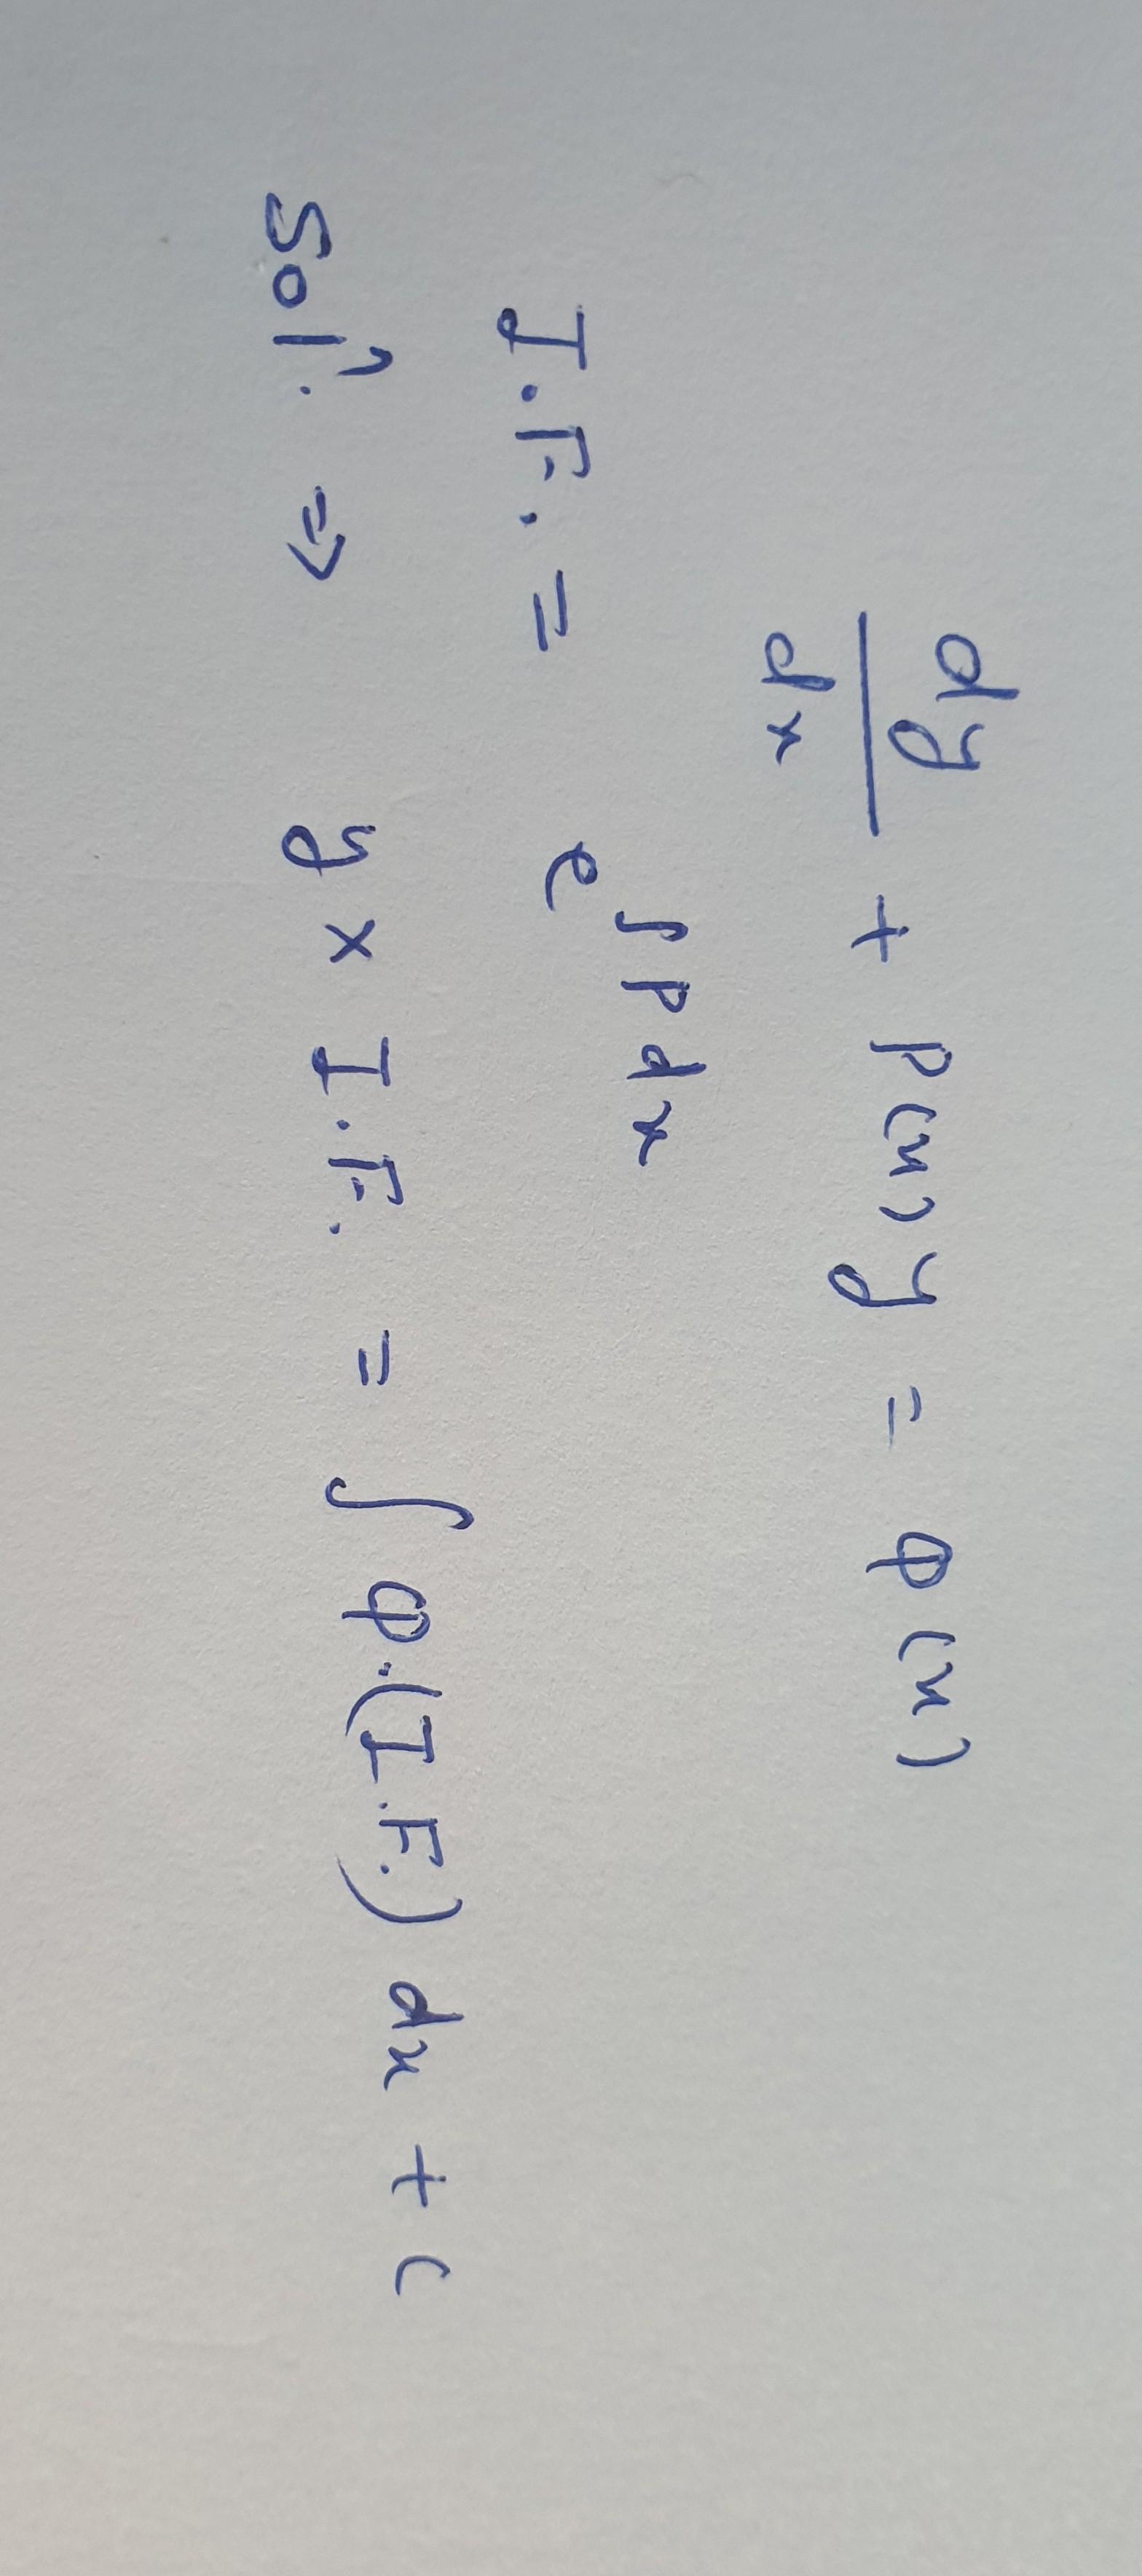 dy/dx + P(x) y = Φ(x)
I.F. = e^∫P dx
Solⁿ. ⇒ y × I.F. = ∫ Φ.(I.F.) dx + c